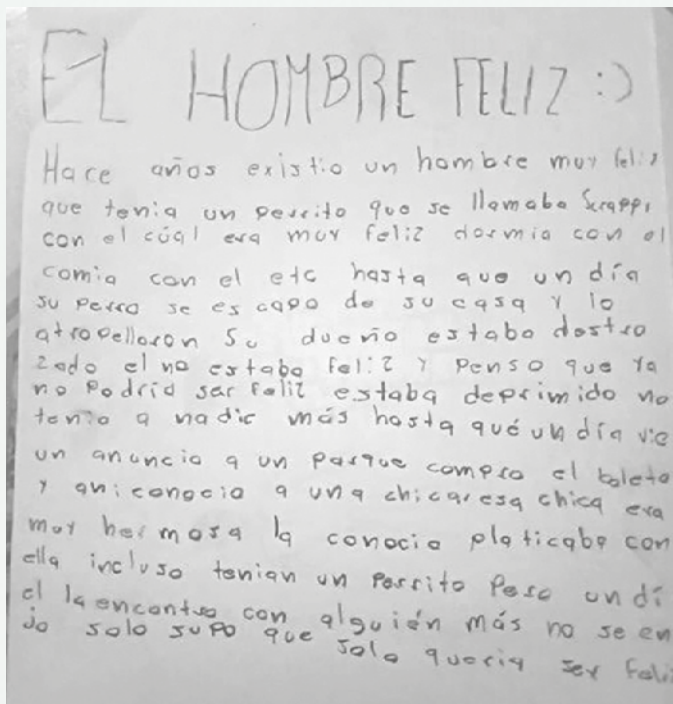 EL HOMBRE FELIZ :)
Hace años existio un hombre muy feliz
que tenia un perrito que se llamaba Scrappi
con el cúal era muy feliz dormia con el
comia con el etc hasta que un día
su perro se escapo de su casa y lo
atropellaron Su dueño estaba destro
zado el no estaba feliz y penso que ya
no podría ser feliz estaba deprimido no
tenia a nadie más hasta qué un día vie
un anuncio a un parque compro el boleto
y ahi conocio a una chica esa chica era
muy hermosa la conocio platicaba con
ella incluso tenian un perrito pero un dí
el la encontro con alguién más no se en
jo solo supo que solo queria ser feliz